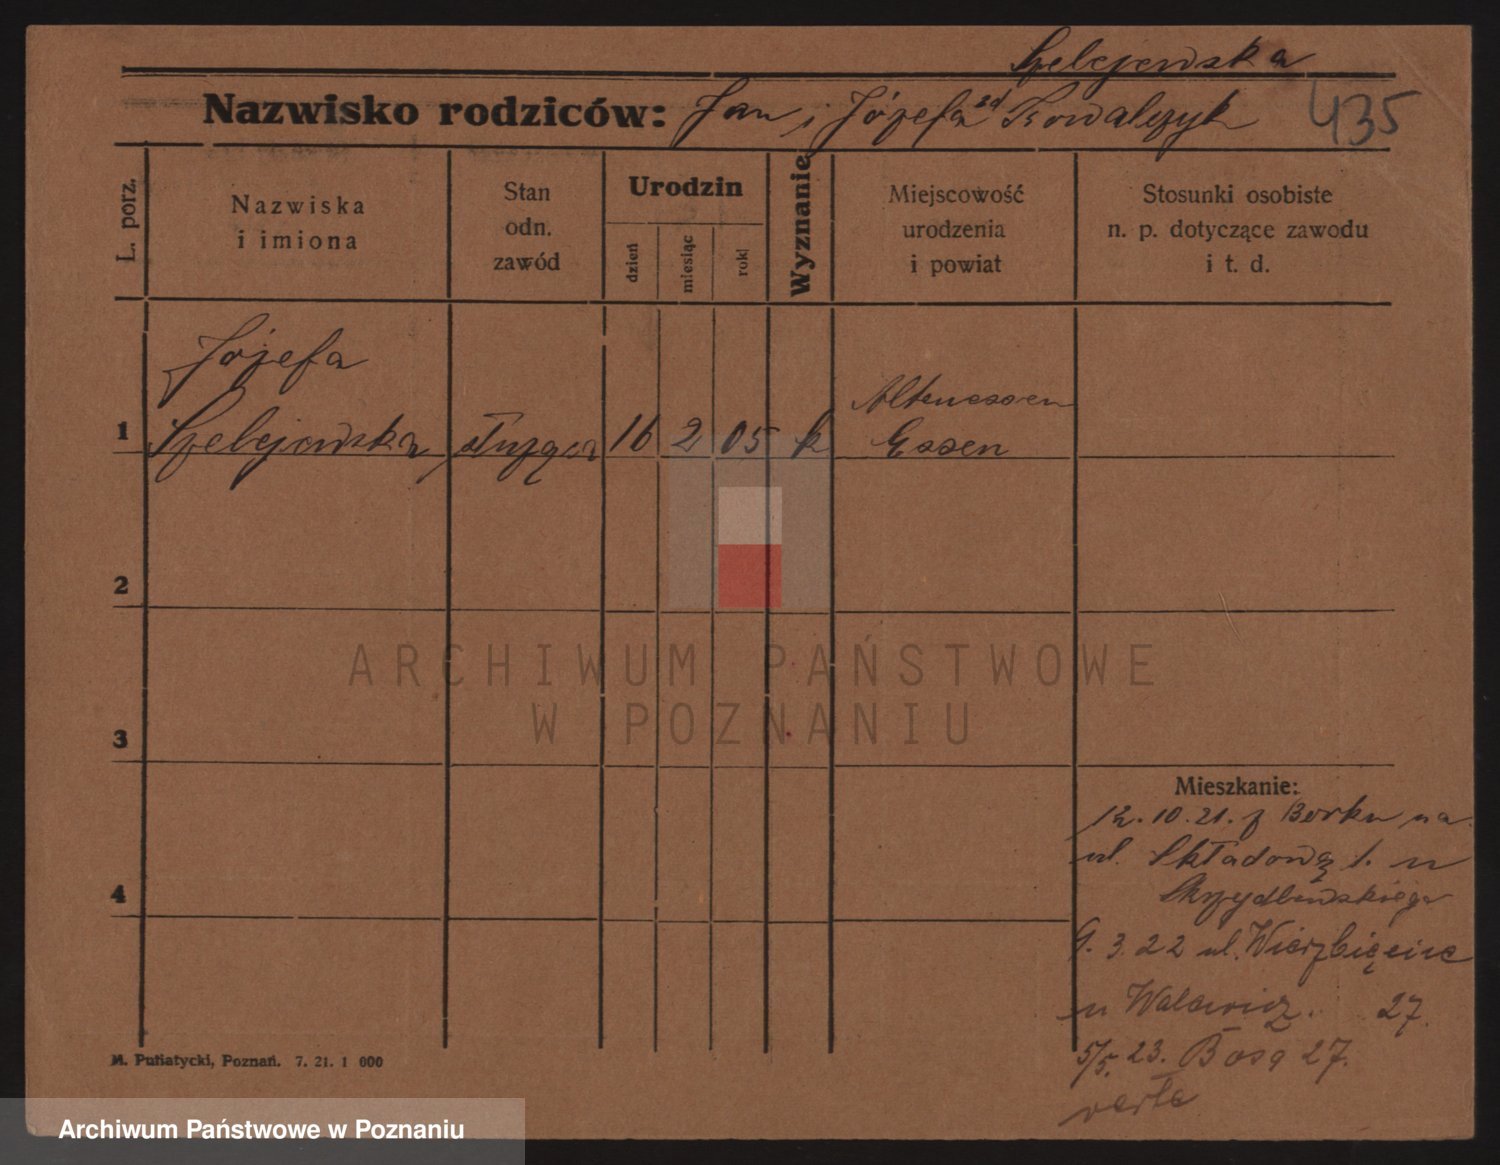 Szelejewska
Nazwisko rodziców: Jan i Józefa zd Kowalczyk 435
L. porz.
Nazwiska
i imiona
Stan
odn.
zawód
Urodzin
dzień
miesiąc
rok
Wyznanie
Miejscowość
urodzenia
i powiat
Stosunki osobiste
n. p. dotyczące zawodu
i t. d.
Józefa
Altenessen
1 Szelejewska służąca 16 2 05 k Essen
2
ARCHIWUM PAŃSTWOWE
W POZNANIU
3
Mieszkanie:
12.10.21. z Borku na
ul. Składową 1. u
Skrzydlewskiego
4
9. 3. 22 ul. Wierzbięcice
u 27.
5/5. 23. 27.
M. Putiatycki, Poznań. 7. 21. 1 000
Archiwum Państwowe w Poznaniu